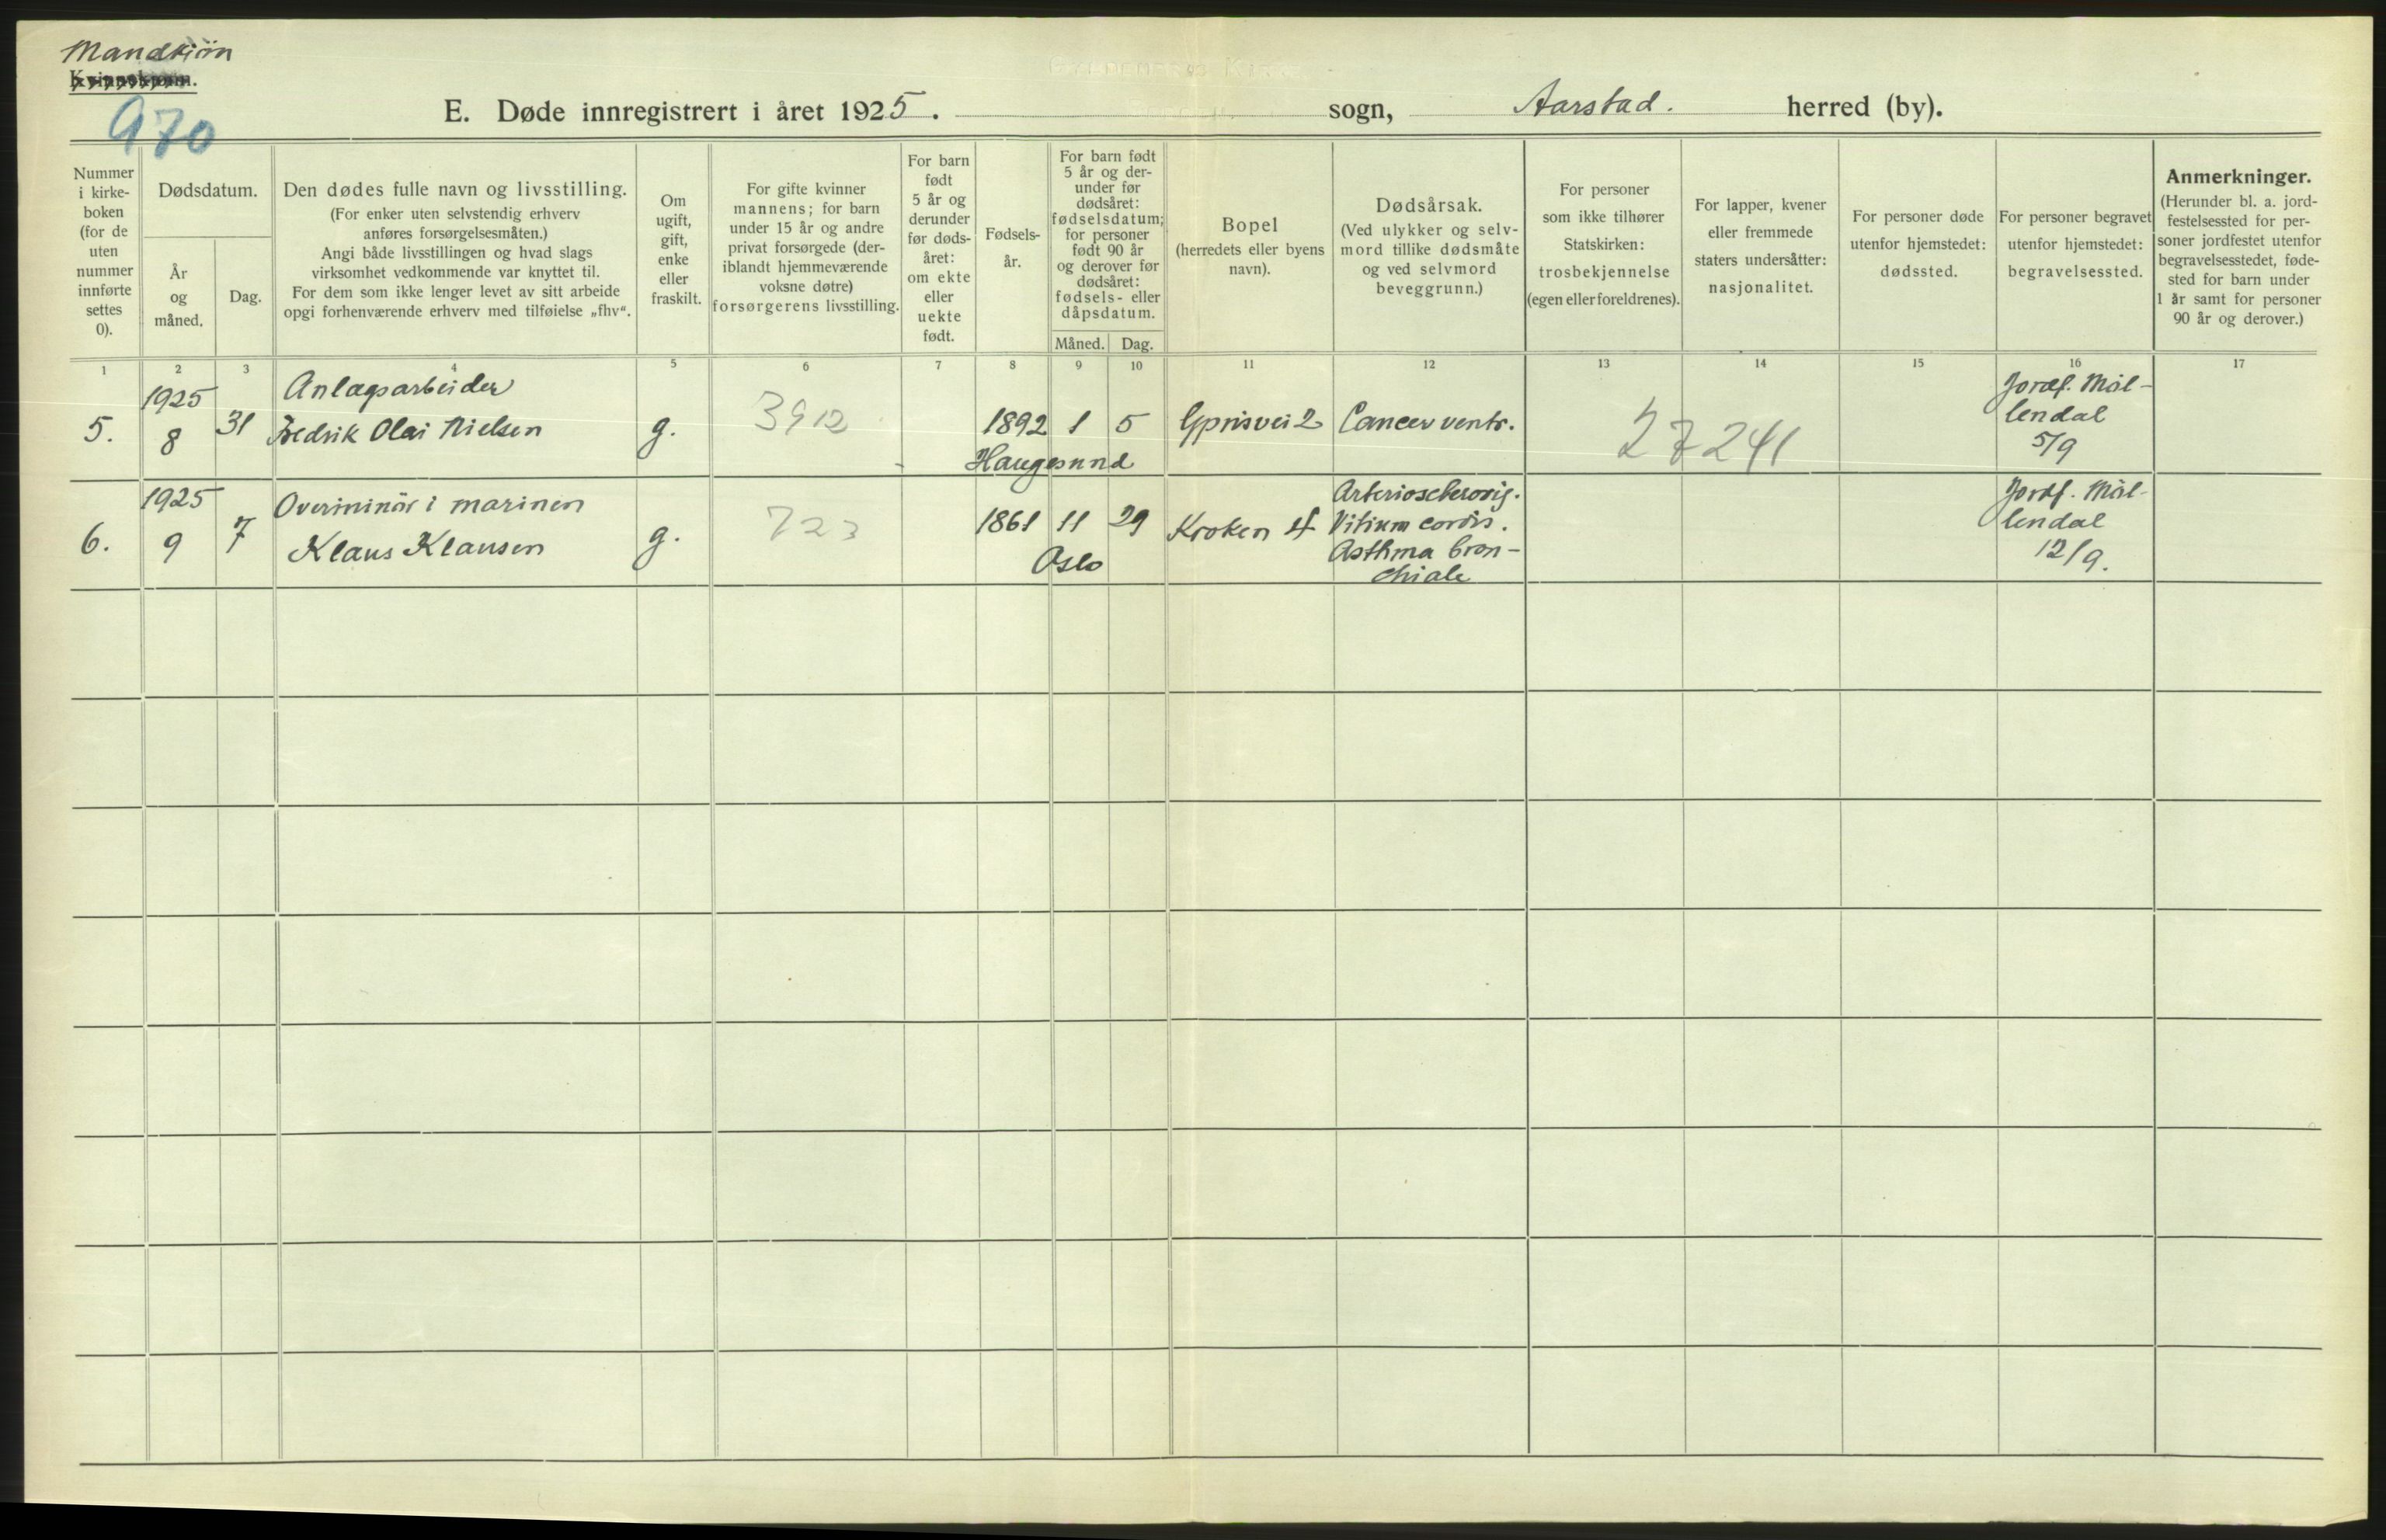 Mandkjøn
Kvinnekjønn.
970
E. Døde innregistrert i året 1925. sogn, Aarstad. herred (by).
Nummer i kirke-boken (for de uten nummer innførte settes 0).
Dødsdatum.
År og måned.
Dag.
Den dødes fulle navn og livsstilling.
(For enker uten selvstendig erhverv
anføres forsørgelsesmåten.)
Angi både livsstillingen og hvad slags
virksomhet vedkommende var knyttet til.
For dem som ikke lenger levet av sitt arbeide
opgi forhenværende erhverv med tilføielse „fhv“.
Om
ugift,
gift,
enke
eller
fraskilt.
For gifte kvinner
mannens; for barn
under 15 år og andre
privat forsørgede (der-
iblandt hjemmeværende
voksne døtre)
forsørgerens livsstilling.
For barn
født
5 år og
derunder
før døds-
året:
om ekte
eller
uekte
født.
Fødsels-
år.
For barn født
5 år og der-
under før
dødsåret:
fødselsdatum;
for personer
født 90 år
og derover før
dødsåret:
fødsels- eller
dåpsdatum.
Måned. Dag.
Bopel
(herredets eller byens
navn).
Dødsårsak.
(Ved ulykker og selv-
mord tillike dødsmåte
og ved selvmord
beveggrunn.)
For personer
som ikke tilhører
Statskirken:
trosbekjennelse
(egen eller foreldrenes).
For lapper, kvener
eller fremmede
staters undersåtter:
nasjonalitet.
For personer døde
utenfor hjemstedet:
dødssted.
For personer begravet
utenfor hjemstedet:
begravelsessted.
Anmerkninger.
(Herunder bl. a. jord-
festelsessted for per-
soner jordfestet utenfor
begravelsesstedet, føde-
sted for barn under
1 år samt for personer
90 år og derover.)
1 2 3 4 5 6 7 8 9 10 11 12 13 14 15 16 17
5.
1925
8
31
Anlægsarbeider
Fredrik Olai Nielsen
g.
3912
1892 1 5
Haugesund
Cancer ventr.
27241
Jordf. Møl-
lendal
5/9
6.
1925
9
7
i marinen
Klaus Klausen
g.
723
1861 11 29
Oslo
Kroken
Vitium cordis.
Asthma bron-
chiale
Jordf. Møl-
lendal
12/9.